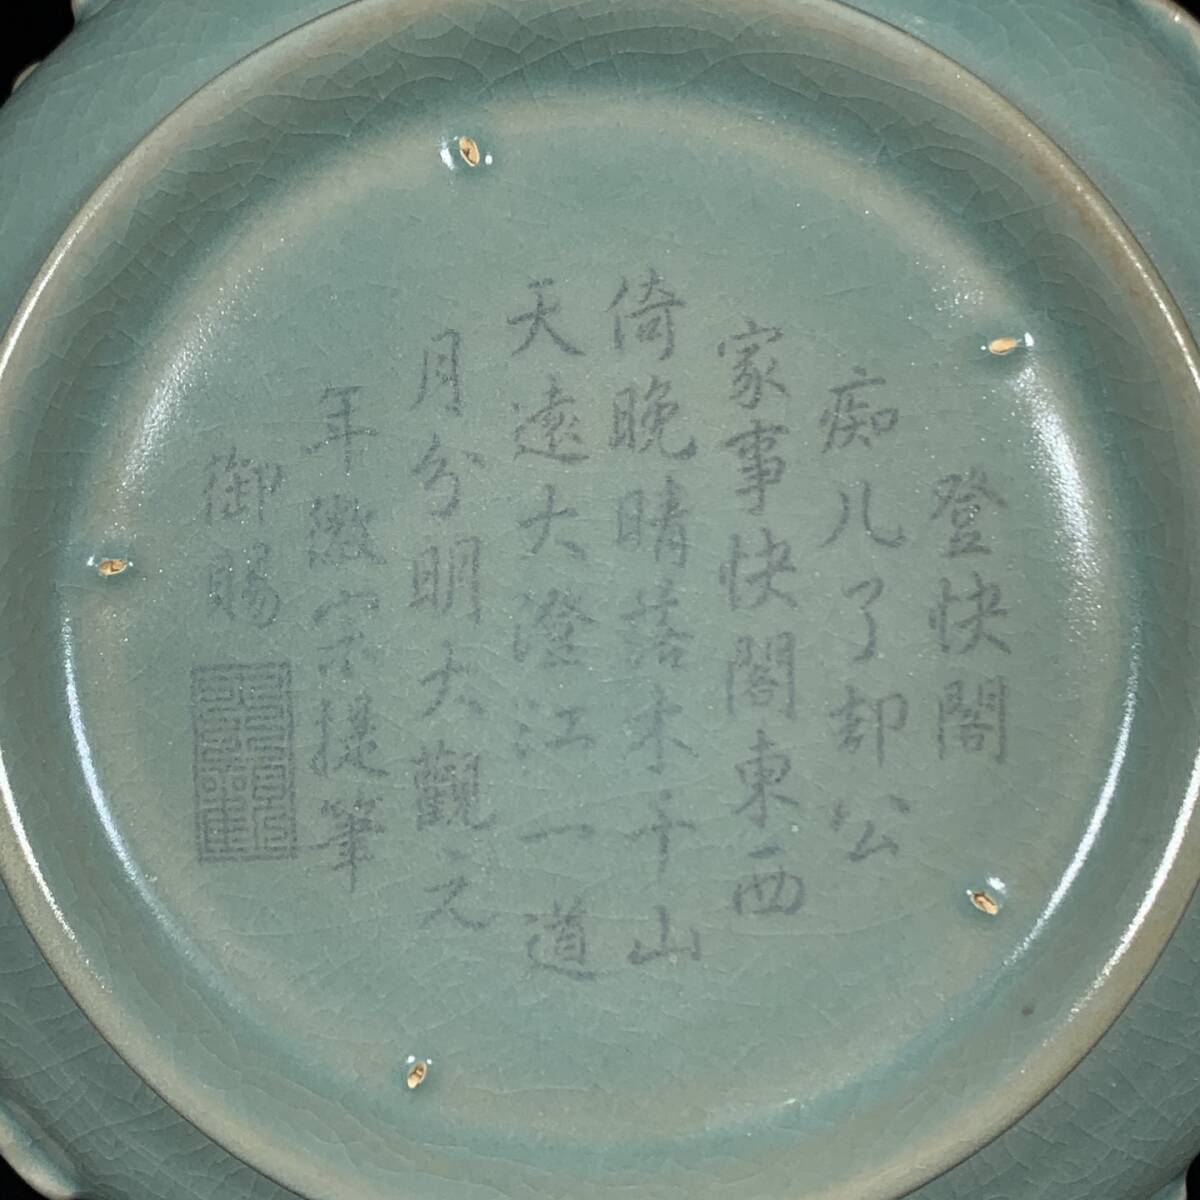 登快閣
痴儿了却公
家事快閣東西
倚晚晴落木千山
天遠大澄江一道
月分明大觀元
年徽宗提筆
御賜